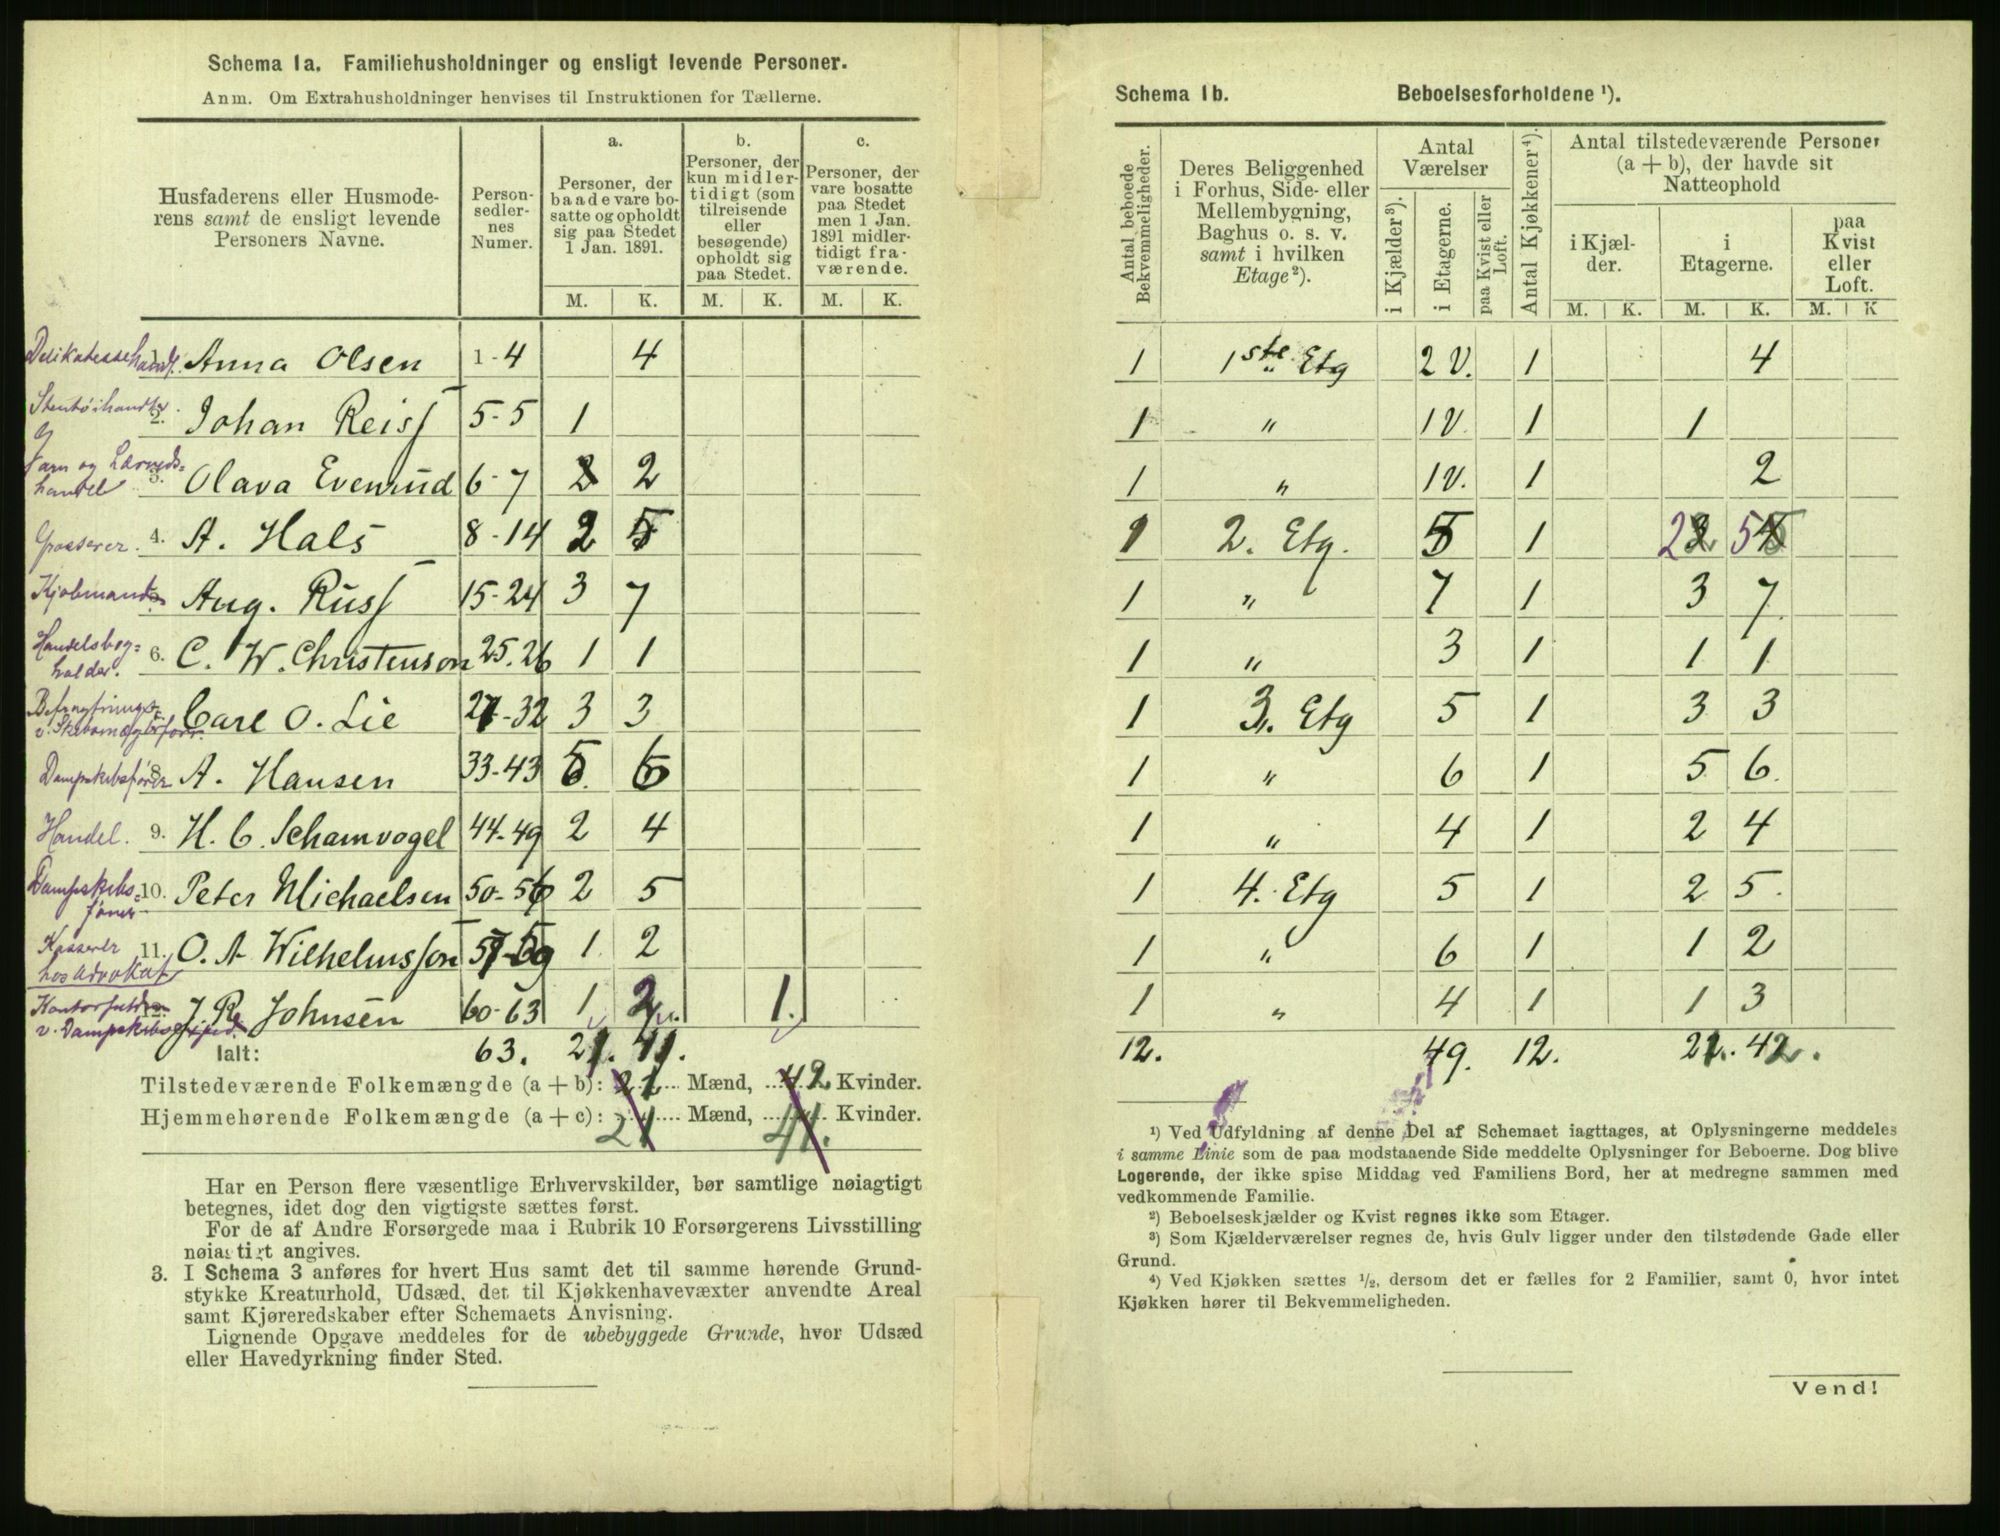 Schema 1a. Familiehusholdninger og ensligt levende Personer.
Anm. Om Extrahusholdninger henvises til Instruktionen for Tællerne.
Husfaderens eller Husmoderens samt de ensligt levende Personers Navne.
Personsedlernes Numer.
a. Personer, der baade vare bosatte og opholdt sig paa Stedet 1 Jan. 1891.
b. Personer, der kun midlertidigt (som tilreisende eller besøgende) opholdt sig paa Stedet.
c. Personer, der vare bosatte paa Stedet men 1 Jan. 1891 midlertidigt fraværende.
M. K. M. K. M. K.
Delikatessehandl. Anna Olsen 1-4 4
Stentøihandler. 2. Johan Reiss 5-5 1
Garn og Lærredshandel 3. Olava Evenrud 6-7 2
Grosserer. 4. A. Hals 8-14 2 5
Kjøbmand Aug. Russ 15-24 3 7
Handelsbogholder. 6. C. W. Christenson 25.26 1 1
Carl O. Lie 27-32 3 3
Dampskibsfører 8. A. Hansen 33-43 5. 6
Handel. 9. H. C. Schamvogel 44-49 2 4
Dampskibsfører 10. Peter Michaelsen 50-56 2 5
Kasserer hos Advokat 11. O. A Wilhelmsson 57-59 1. 2
J. R. Johnsen 60-63 1 2 1.
Ialt: 63. 21. 41.
Tilstedeværende Folkemængde (a + b): 21 Mænd, 42 Kvinder.
Hjemmehørende Folkemængde (a + c): 21 Mænd, 41. Kvinder.
Har en Person flere væsentlige Erhvervskilder, bør samtlige nøiagtigt
betegnes, idet dog den vigtigste sættes først.
For de af Andre Forsørgede maa i Rubrik 10 Forsørgerens Livsstilling
nøiagtigt angives.
3. I Schema 3 anføres for hvert Hus samt det til samme hørende Grund-
stykke Kreaturhold, Udsæd, det til Kjøkkenhavevæxter anvendte Areal
samt Kjøreredskaber efter Schemaets Anvisning.
Lignende Opgave meddeles for de ubebyggede Grunde, hvor Udsæd
eller Havedyrkning finder Sted.
Schema 1b. Beboelsesforholdene ¹).
Antal beboede Bekvemmeligheder.
Deres Beliggenhed i Forhus, Side- eller Mellembygning, Baghus o. s. v. samt i hvilken Etage ²).
Antal Værelser
i Kjælder ³).
i Etagerne.
paa Kvist eller Loft.
Antal Kjøkkener ⁴).
Antal tilstedeværende Personer (a + b), der havde sit Natteophold
i Kjælder.
i Etagerne.
paa Kvist eller Loft.
M. K. M. K. M. K
1 1ste Etg 2 V. 1 4
1 " 1 V. 1 1
1 " 1 V. 1 2
1 2. Etg. 5 1 2 5
1 " 7 1 3 7
1 " 3 1 1 1
1 3. Etg 5 1 3 3
1 " 6 1 5 6.
1 " 4 1 2 4
1 4. Etg 5 1 2 5.
1 " 6 1 1 2
1 " 4 1 1 3
12. 49. 12. 21. 42.
¹) Ved Udfyldning af denne Del af Schemaet iagttages, at Oplysningerne meddeles
i samme Linie som de paa modstaaende Side meddelte Oplysninger for Beboerne. Dog blive
Logerende, der ikke spise Middag ved Familiens Bord, her at medregne sammen med
vedkommende Familie.
²) Beboelseskjælder og Kvist regnes ikke som Etager.
³) Som Kjælderværelser regnes de, hvis Gulv ligger under den tilstødende Gade eller
Grund.
⁴) Ved Kjøkken sættes ½, dersom det er fælles for 2 Familier, samt 0, hvor intet
Kjøkken hører til Bekvemmeligheden.
Vend!